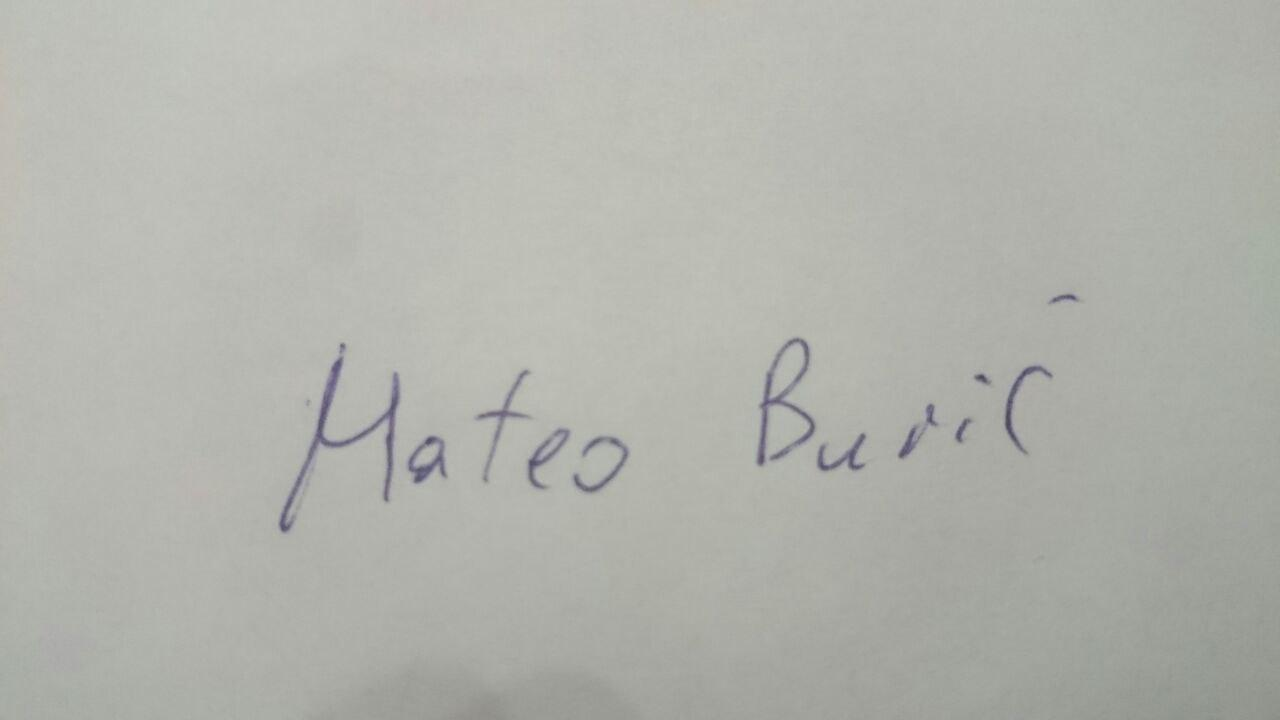 Mateo Burić